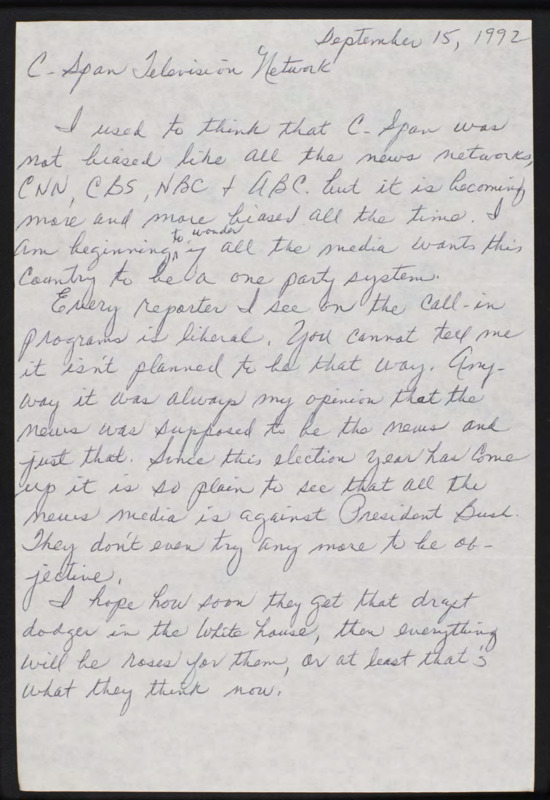 September 15, 1992
C-Span Television Network
I used to think that C-Span was
not biased like all the news networks,
CNN, CBS, NBC + ABC. but it is becoming
more and more biased all the time. I
am beginning to wonder if all the media wants this
Country to be a one party system.
Every reporter I see on the call-in
programs is liberal. You cannot tell me
it isn't planned to be that way. Any-
way it was always my opinion that the
news was supposed to be the news and
just that. Since this election year has come
up it is so plain to see that all the
news media is against President Bush.
They don't even try any more to be ob-
jective.
I hope how soon they get that draft
dodger in the White house, then everything
will be roses for them, or at least that's
what they think now.